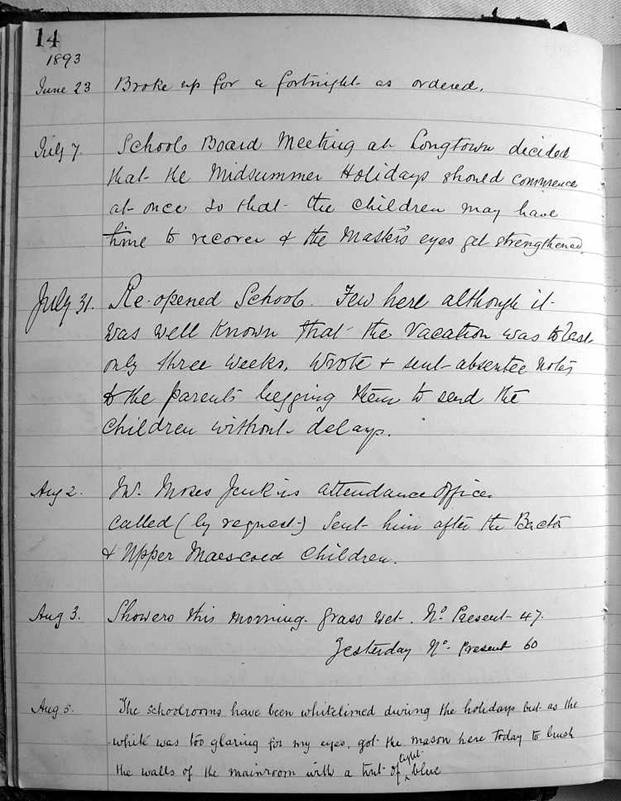 14
1893
June 23 Broke up for a fortnight as ordered.
July 7. School Board Meeting at Longtown decided
that the Midsummer Holidays should commence
at once so that the children may have
time to recover & the Master's eyes get strengthened.
July 31. Re-opened School. Few here although it
was well known that the vacation was to last
only three weeks. Wrote & sent absentee notes
to the parents begging them to send the
children without delay.
Aug 2. Mr. Moses Jenkins attendance Officer
called (by request) Sent him after the Bacton
& Upper Maescoed Children.
Aug 3. Showers this morning. Grass wet. No. Present 47.
Yesterday No. Present 60
Aug 5. The schoolrooms have been whitelimed during the holidays but as the
white was too glaring for my eyes, got the mason here today to brush
the walls of the mainroom with a tint of light blue